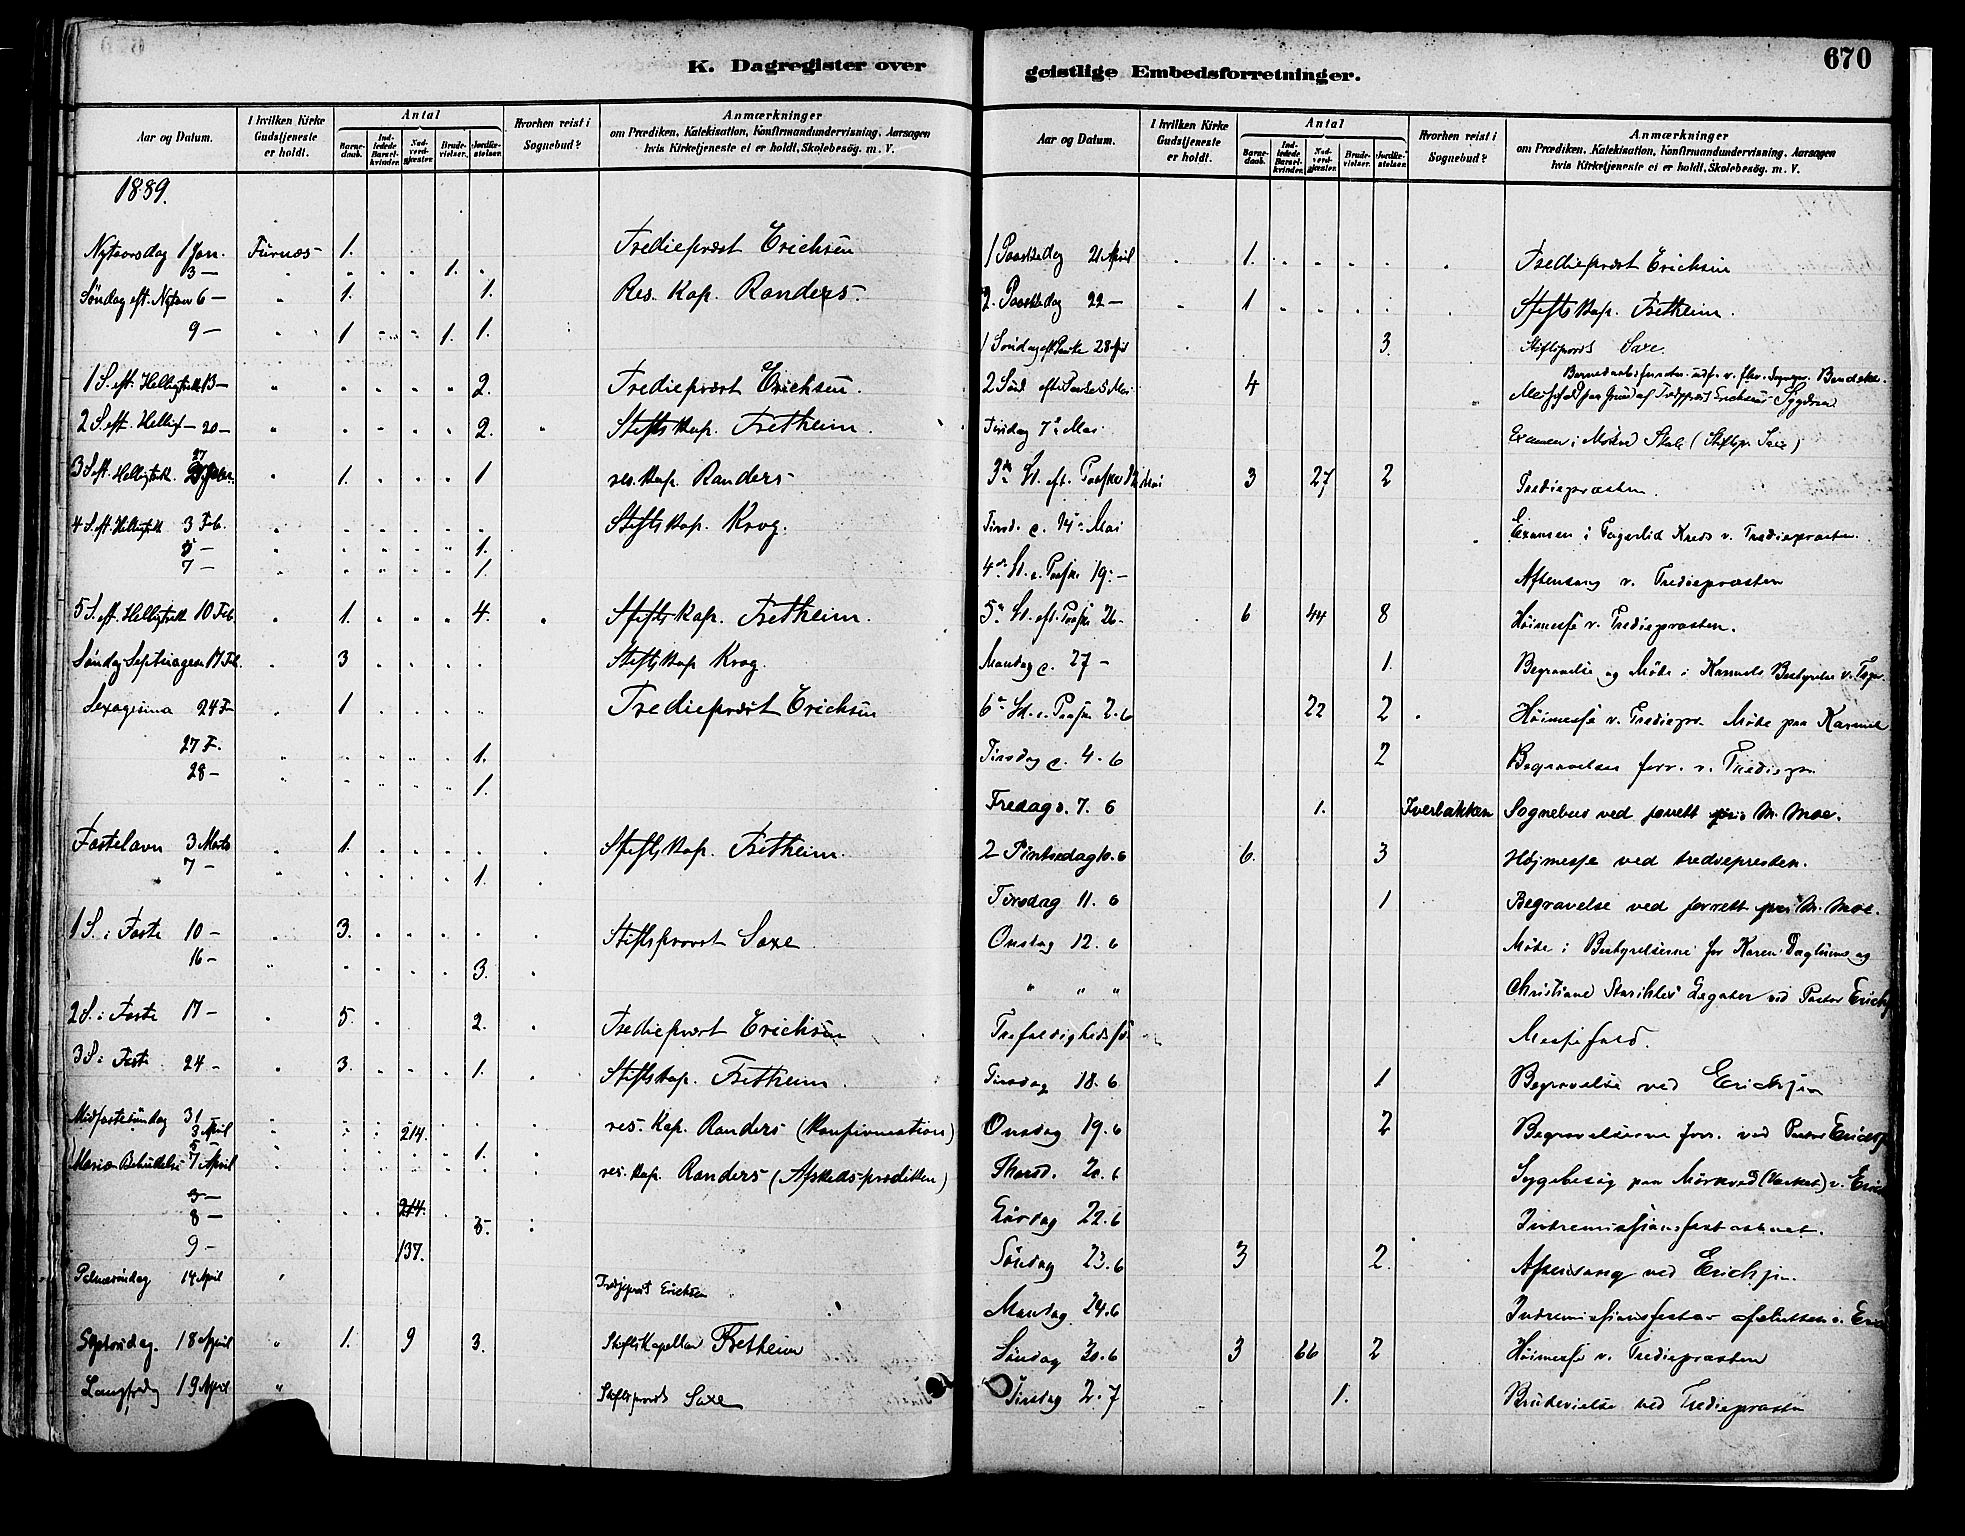 K. Dagregister over
Aar og Datum. I hvilken Kirke Gudstjeneste er holdt. Antal Barnedaab. Indledede Barselkvinder. Nadverdgjæster. Brudevielser. Jordfæstelser. Hvorhen reist i Sognebud? Anmærkninger om Prædiken, Katekisation, Konfirmandundervisning, Aarsagen hvis Kirketjeneste ei er holdt, Skolebesög. m. V.
1889.
Nytaarsdag 1 Jan. Furnæs 1. Tredieprest Erichsen
3 — " 1.
Søndag eft. Nytaar 6 — " 1. 1. Res. Kap. Randers.
9 — " 1 1. 1.
1 S. eft. Helligtrek 13 — " 2. Tredieprest Erichsen.
2 S. eft. Hellig — 20 — " 2. Stiftskap. Fretheim.
3 S. eft. Helligtrek. 27 " 1. 1 res. kap. Randers
4 S. eft Helligtrek 3 Feb. " Stiftskap. Krog.
5 — " 1.
7 — " 1.
5 S. eft. Helligtrek 10 Feb. " 1. 4. Stiftskap. Fretheim.
Søndag Septuagesi 17 Feb. " 3 Stiftskap Krog.
Sexagesima 24 F " 1 Tredieprest Erichsen
27 F. " 1.
28 — " 1.
Fastelavn 3 Marts " 1. Stiftskap. Fretheim.
7 — " 1.
1 S. i Faste 10 — " 3. Stiftsprovst Saxe
16 — " 3.
2 S. i Faste 17 — " 5. 2. Tredieprest Erichsen
3 S. i Faste 24 — " 3. 1. Stiftskap. Fretheim.
Midfastesöndag 31 " res. Kap. Randers (Konfirmation)
3 April 214.
5 — " 1.
Mariæ Bebudelse 7 April res. kap. Randers (Afskedsprædiken)
214.
8 — " 5.
9 — 137.
Palmesöndag 14 April " Tredjeprest Erichsen
Skjærtorsdag 18 April " 1. 9 3. Stiftskapellan Fretheim
Langfredag 19 April " Stiftsprovst Saxe
geistlige Embedsforretninger. 670
Aar og Datum. I hvilken Kirke Gudstjeneste er holdt. Antal Barnedaab. Indledede Barselkvinder. Nadverdgjæster. Brudevielser. Jordfæstelser. Hvorhen reist i Sognebud? Anmærkninger om Prædiken, Katekisation, Konfirmandundervisning, Aarsagen hvis Kirketjeneste ei er holdt, Skolebesög. m. V.
1 Paaskedag 21 April 1. Tredieprest Erichsen
2. Paaskedag 22 — 1 Stiftskap. Fretheim.
1 Søndag eft Paaske 28 April 3. Stiftsprovst Saxe.
2 Sønd efter Paaske 5 Mai 4 Barnedaabsforretn. udf. v.
Messefald paa Grund af Tredjeprest Erichsens Sygdom
Tirsdag 7 Mai Examen i Mørkved Skole (Stiftspr. Saxe)
3 S. eft. Paaske 12 Mai 3 27 2 Trediepræsten.
Tirsd. 14 Mai Examen i Fagerlid Kreds v. Trediepræsten.
4 S. e. Paaske 19 — Aftensang v. Trediepræsten
5 S. eft. Paaske 26 — 6 44 8 Høimesse v. Trediepræsten.
Mandag 27 — 1. Begravelse og Møde i Karmels Bestyrelse v.
6 S. e. Paaske 2. 6 22 2 Høimesse v. Trediepr. Møde paa Karmel
Tirsdag 4. 6 2 Begravelser forr. v. Trediepr.
Fredag 7. 6 1. Iverbakken Sognebud ved M. Moe.
2 Pintsedag 10. 6 6. 3 Højmesse ved tredjepresten.
Tirsdag 11. 6 1 Begravelse ved M. Moe.
Onsdag 12. 6 Møde i Bestyrelserne for Karen og
" " " Christiane Legater ved Pastor Erichs
Trefoldighedssø. Messefald.
Tirsdag 18. 6 1 Begravelse ved Erichsen
Onsdag 19. 6 2 Begravelserne forr. ved Pastor Erichs
Thorsd. 20. 6 Sygebesøg paa Mørkved v.
Lørdag 22. 6
Søndag 23. 6 3 2 Aftensang ved Erichsen.
Mandag 24. 6
Søndag 30. 6 3 66 2 Høimesse v. Trediepræsten
Tirsdag 2. 7 1. Brudevielse ved Trediepræsten